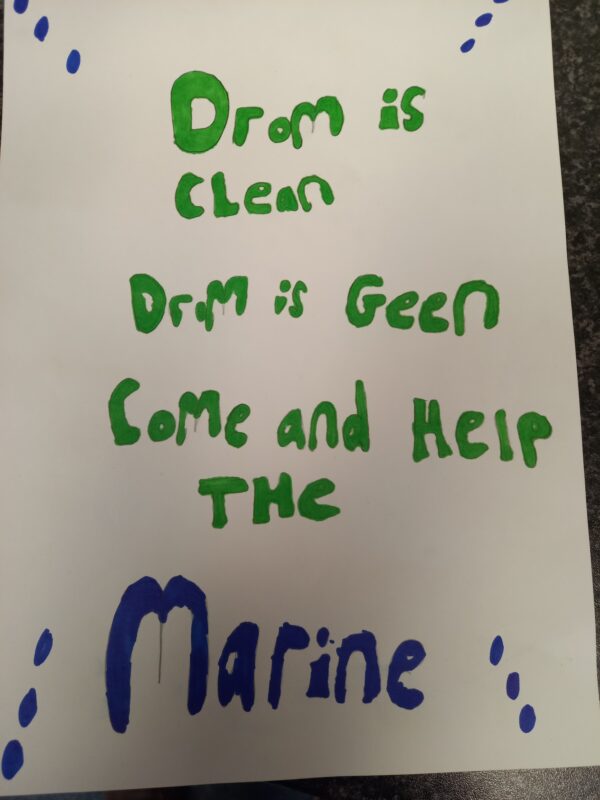 Drom is
CLean
Drom is Geen
Come and Help
THe
Marine